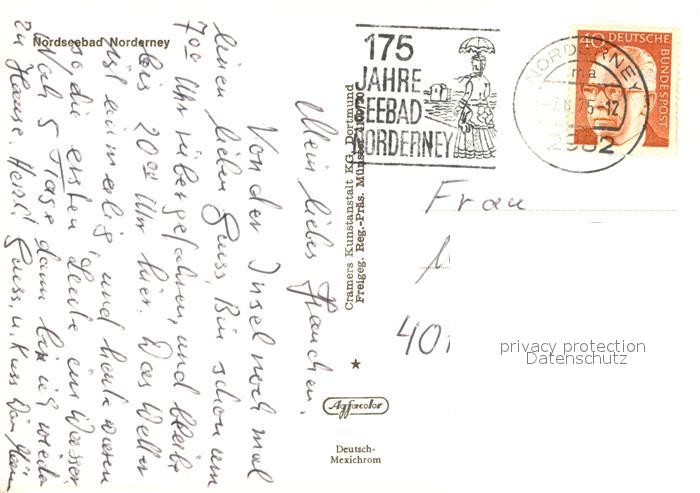 Nordseebad Norderney
175
JAHRE
SEEBAD
NORDERNEY
NORDERNEY
ma
75-17
2982
40 DEUTSCHE
BUNDESPOST
Mein liebes Frauchen.
Von der Insel noch mal
einen lieben Gruss. Bin schon um
700 Uhr rübergefahren, und bleibe
bis 2000 Uhr hier. Das Wetter
ist einmalig, und heute waren
so die ersten Leute im Wasser
Noch 5 Tage dann bin ich wieder
zu Hause. Herzl. Gruss, u. Kuss Dein
Cramers Kunstanstalt KG, Dortmund
Freigeg. Reg.-Präs. Münster
Agfacolor
Deutsch-
Mexichrom
Frau
401
privacy protection
Datenschutz